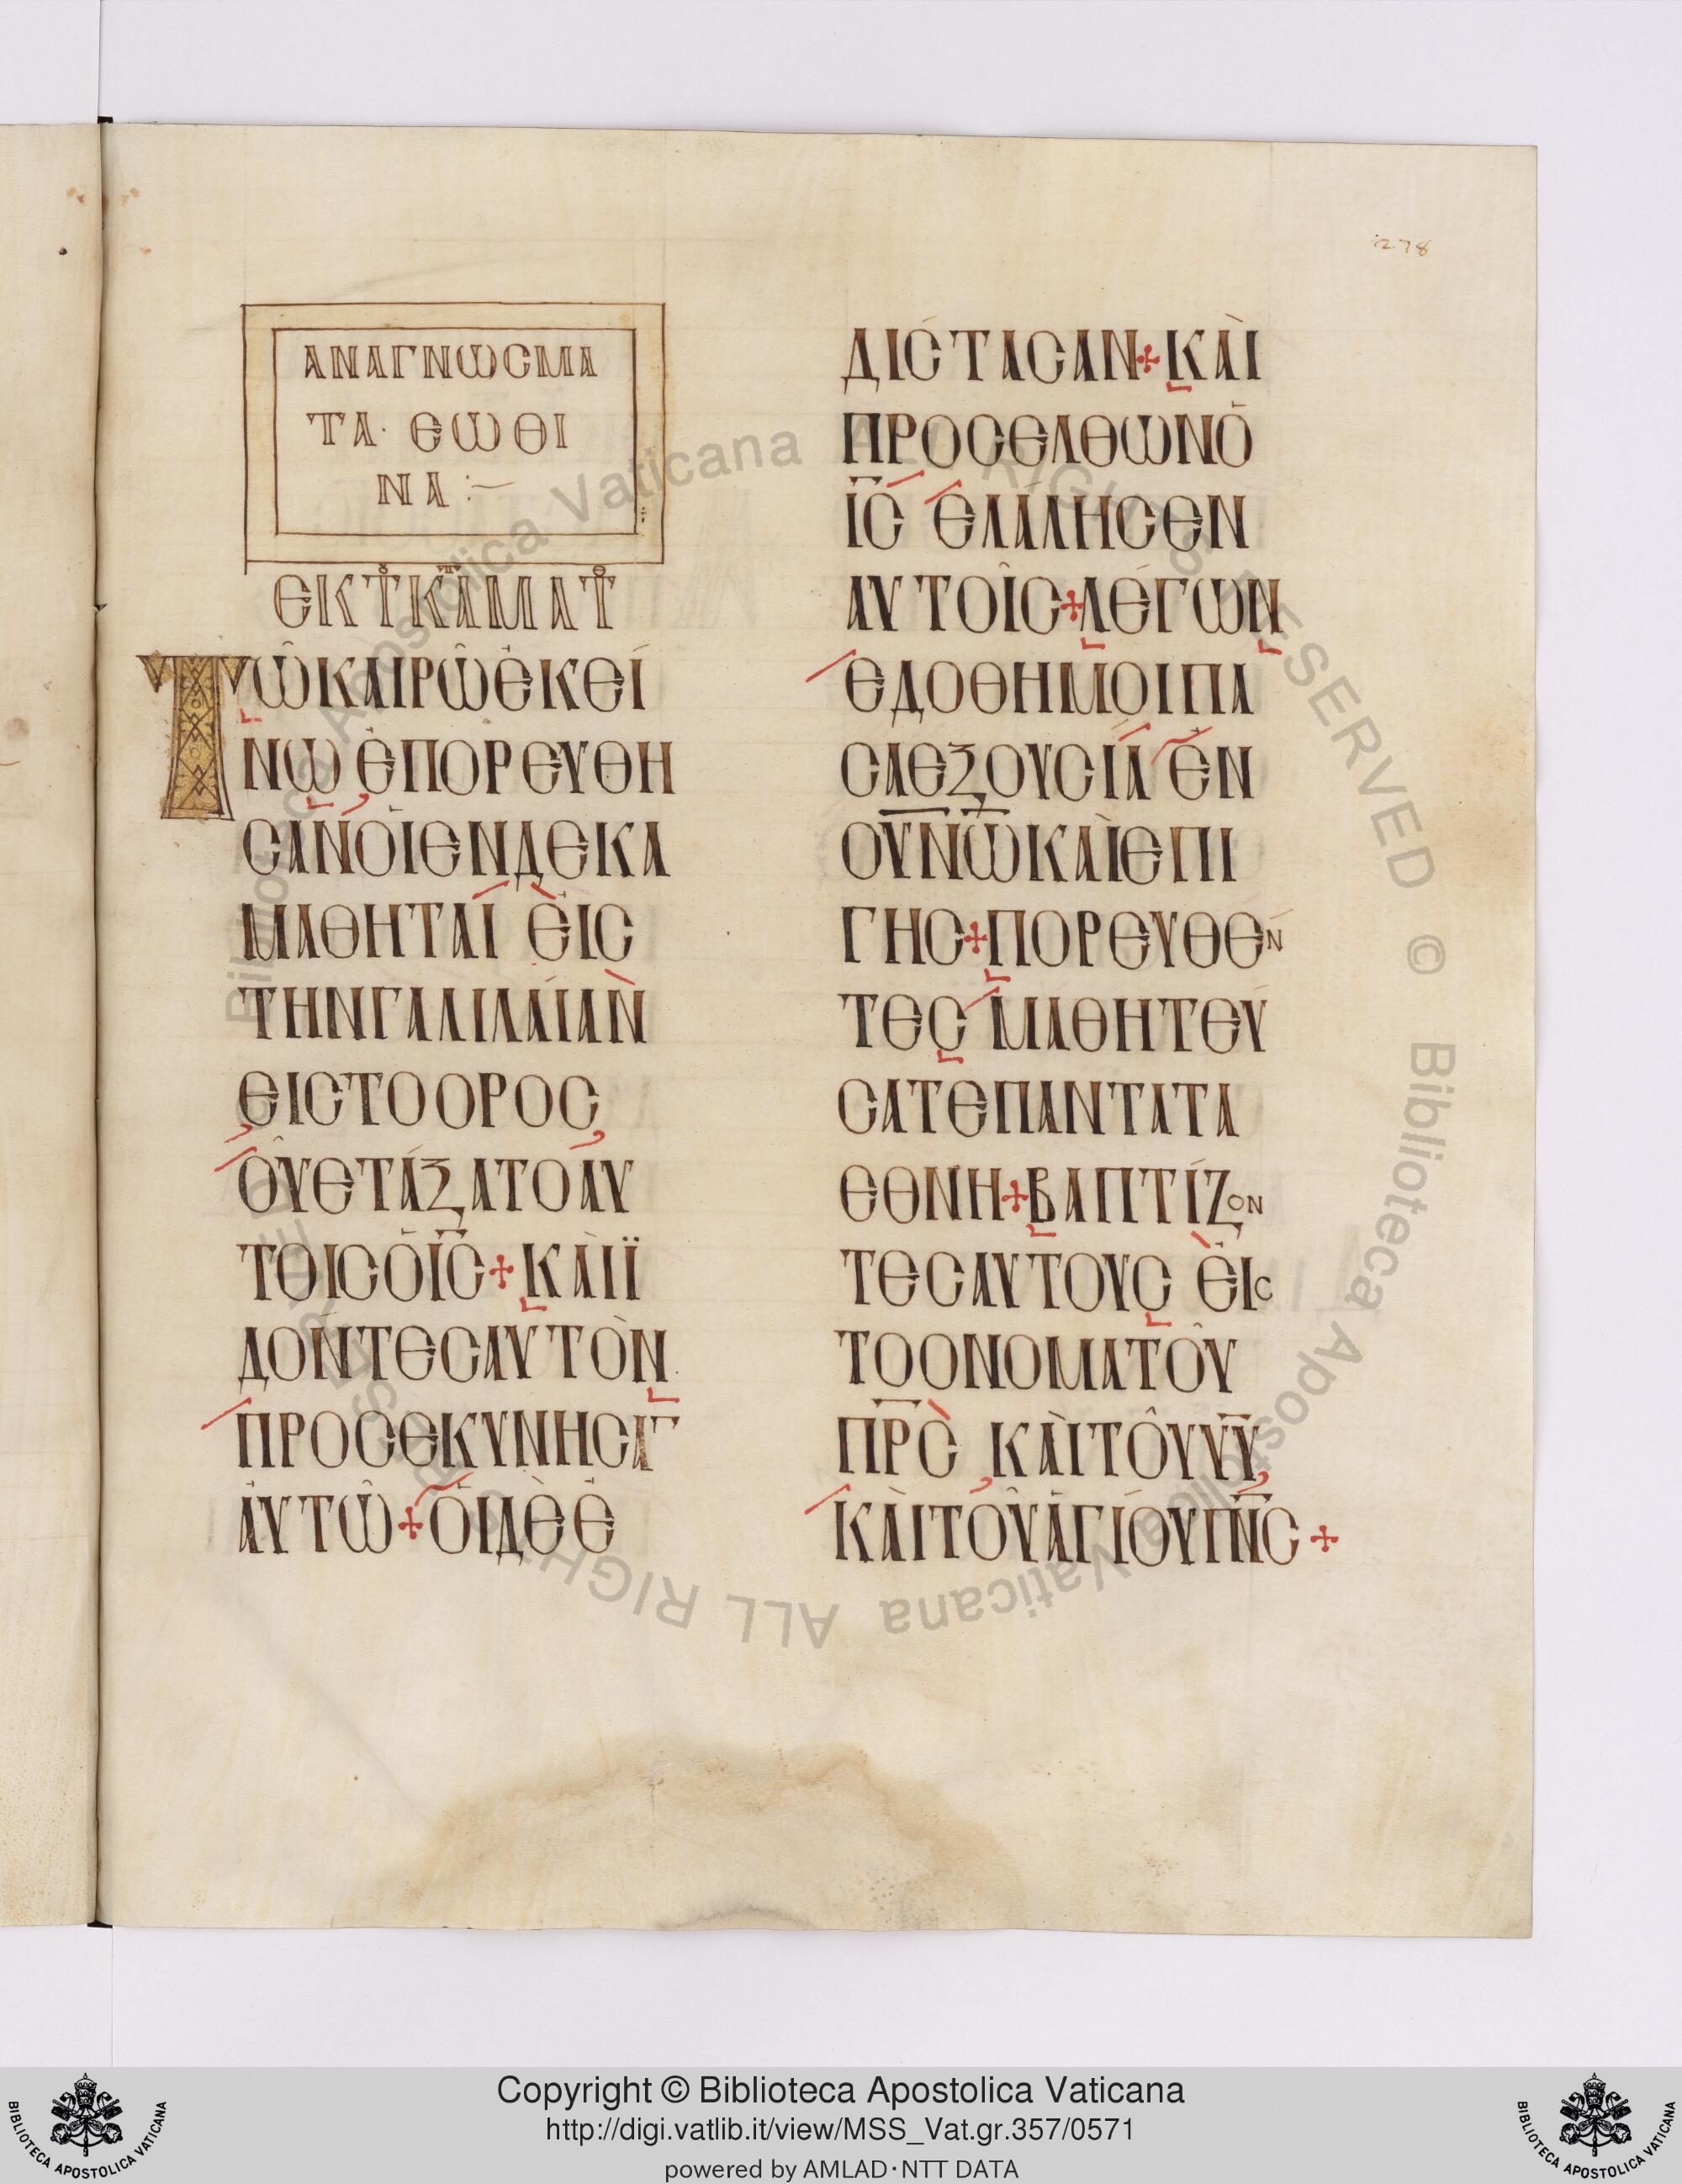 278
ΑΝΑΓΝΩϹΜΑ
ΤΑ· ΕΩΘΙ
ΝΑ :~
ΤΩ͂ΚΑΙΡΩ͂ἘΚΕΊ
ΝΩ ἘΠΟΡΕΥΘΗ
ϹΑΝΟΙΕΝΔΕΚΑ
ΜΑΘΗΤΑΙ ἘΙϹ
ΤΗΝΓΑΛΙΛΑΊΑΝ
ΕΙϹΤΟΟΡΟϹ
ΟΥ͂ΕΤΆΞΑΤΟΑΥ
ΤΟΙϹΟΙ̅Ϲ̅+ΚΑΙΪ
ΔΟΝΤΕϹΑΥΤΟΝ
ΠΡΟϹΕΚΥΝΗϹΑ̅
ΑΥΤΩ͂+ΟΙΔΕΕ
ΔΙϹΤΑϹΑΝ+ΚΑΙ
ΠΡΟϹΕΛΘΩΝΟ
Ι̅Ϲ̅ ΕΛΑΛΗϹΕΝ
ΑΥΤΟΙ͂Ϲ+ΛΕΓΩΝ
ΕΔΟΘΗΜΟΙΠΑ
ϹΑΕΞΟΥϹΙΑ ΕΝ
ΟΥ̅Ν̅Ω̅ΚΑΙΕΠΙ
ΓΗϹ+ΠΟΡΕΥΘΕΝ
ΤΕϹ ΜΑΘΗΤΕΥ
ϹΑΤΕΠΑΝΤΑΤΑ
ΕΘΝΗ+ΒΑΠΤΙΖΟΝ
ΤΕϹΑΥΤΟΥϹ ΕΙϹ
ΤΟΟΝΟΜΑΤΟΥ͂
Π̅Ρ̅Ϲ̅ ΚΑΙΤΟΥ͂Υ̅Υ̅
ΚΑΙΤΟΥ͂ΑΓΙΟΥΠ̅Ν̅Ϲ̅+
Copyright © Biblioteca Apostolica Vaticana
http://digi.vatlib.it/view/MSS_Vat.gr.357/0571
powered by AMLAD·NTT DATA
BIBLIOTECA APOSTOLICA VATICANA
BIBLIOTECA APOSTOLICA VATICANA
Biblioteca Apostolica Vaticana ALL RIGHTS RESERVED © Biblioteca Apostolica Vaticana ALL RIGHTS RESERVED ©